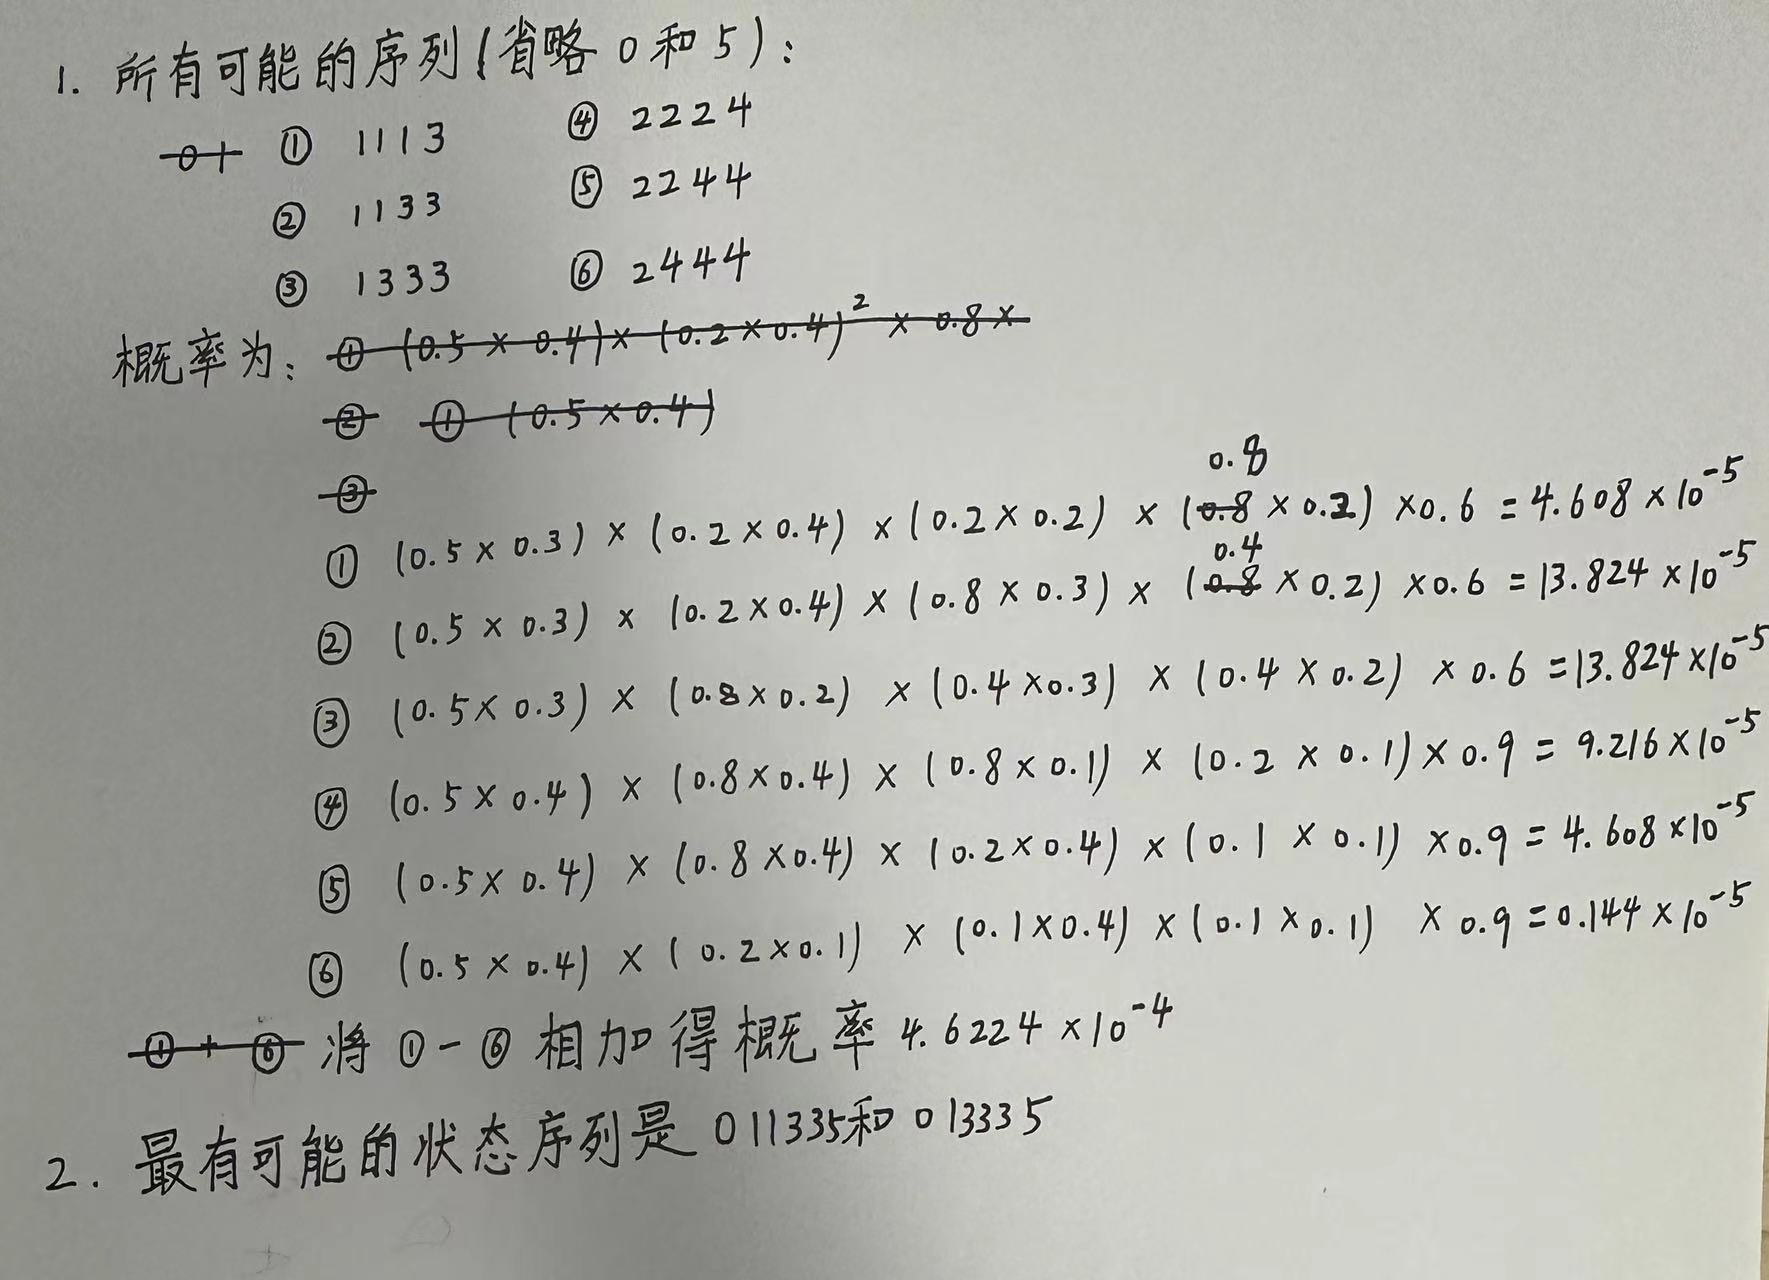 1. 所有可能的序列(省略0和5):
0 1 ① 1113 ④ 2224
② 1133 ⑤ 2244
③ 1333 ⑥ 2444
概率为: ① (0.5 × 0.4)× (0.2 × 0.4)² × 0.8 ×
② ① (0.5 × 0.4)
③
0.8
① (0.5 × 0.3) × (0.2 × 0.4) × (0.2 × 0.2) × (0.8 × 0.2) ×0.6 = 4.608 × 10⁻⁵
0.4
② (0.5 × 0.3) × (0.2 × 0.4) × (0.8 × 0.3) × (0.8 × 0.2) ×0.6 = 13.824 ×10⁻⁵
③ (0.5 × 0.3) × (0.8 × 0.2) × (0.4 ×0.3) × (0.4 × 0.2) × 0.6 = 13.824 ×10⁻⁵
④ (0.5 × 0.4) × (0.8 × 0.4) × (0.8 × 0.1) × (0.2 × 0.1) × 0.9 = 9.216 ×10⁻⁵
⑤ (0.5 × 0.4) × (0.8 × 0.4) × (0.2 × 0.4) × (0.1 × 0.1) ×0.9 = 4.608 ×10⁻⁵
⑥ (0.5 × 0.4) × (0.2 × 0.1) × (0.1 × 0.4) × (0.1 × 0.1) × 0.9 = 0.144 × 10⁻⁵
① + ⑥ 将 ① - ⑥ 相加得概率 4.6224 ×10⁻⁴
2. 最有可能的状态序列是 011335和 013335